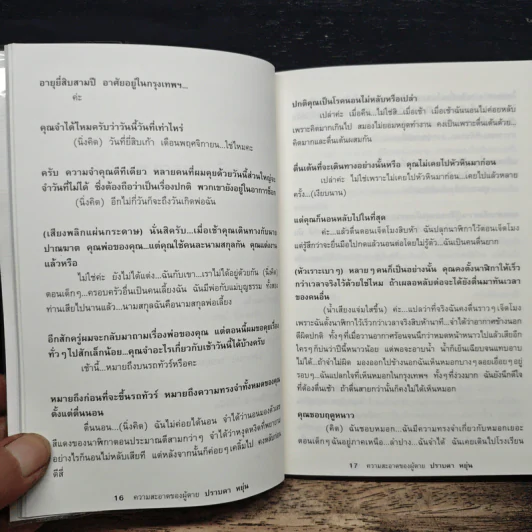 อายุยี่สิบสามปี อาศัยอยู่ในกรุงเทพฯ...
ค่ะ
คุณจำได้ไหมครับว่าวันนี้วันที่เท่าไหร่
(นิ่งคิด) วันที่ยี่สิบเก้า เดือนพฤศจิกายน...ใช่ไหมคะ
ครับ ความจำคุณดีทีเดียว หลายคนที่ผมคุยด้วยวันนี้ส่วนใหญ่จะ
จำวันที่ไม่ได้ ซึ่งต้องถือว่าเป็นเรื่องปกติ พวกเขายังอยู่ในอาการช็อก
(นิ่งคิด) อีกไม่กี่วันก็จะถึงวันเกิดพ่อฉัน
(เสียงพลิกแผ่นกระดาษ) นั่นสิครับ...เมื่อเช้าคุณเดินทางกับนาย
ปานฉาต คุณพ่อของคุณ...แต่คุณใช้คนละนามสกุลกัน คุณแต่งงาน
แล้วหรือ
ไม่ใช่ค่ะ ยังไม่ได้แต่ง...ฉันกับเขา...เราไม่ได้อยู่ด้วยกัน
ตอนเด็กๆ...ครอบครัวอื่นเป็นคนเลี้ยงฉัน ฉันมีพ่อกับแม่บุญธรรม
ท่านเสียไปนานแล้ว...นามสกุลฉันคือนามสกุลพ่อเลี้ยง
อีกสักครู่ผมจะกลับมาถามเรื่องพ่อของคุณ แต่ตอนนี้ผมขอคุยเรื่อง
ทั่วๆ ไปสักเล็กน้อย...คุณจำอะไรเกี่ยวกับเช้าวันนี้ได้บ้างครับ
เช้านี้...หมายถึงบนรถทัวร์หรือคะ
หมายถึงก่อนที่จะขึ้นรถทัวร์ หมายถึงความทรงจำทั้งหมดของคุณ
ตั้งแต่ตื่นนอน
ตื่นนอน...(นิ่งคิด) ฉันไม่ค่อยได้นอน จำได้ว่านอนมองตัวเลข
สีแดงของนาฬิกาตอนประมาณตีสามกว่าๆ จำได้ว่าหงุดหงิดที่พยายาม
อย่างไรก็นอนไม่หลับเสียที แต่หลังจากนั้นก็ค่อยๆ เคลิ้มไป คงหลับตอน
ตีสี่
16 ความสะอาดของผู้ตาย ปราบดา หยุ่น
ปกติคุณเป็นโรคนอนไม่หลับหรือเปล่า
เปล่าค่ะ เมื่อคืน...ไม่ใช่สิ...เมื่อเช้า เมื่อเช้าฉันนอนไม่ค่อยหลับ
เพราะคิดมากเกินไป สมองไม่ยอมหยุดทำงาน คงเป็นเพราะตื่นเต้นด้วย...
คิดมากและตื่นเต้นผสมกัน
ตื่นเต้นที่จะเดินทางอย่างนั้นหรือ คุณไม่เคยไปหัวหินมาก่อน
เปล่าค่ะ ไม่ใช่เพราะไม่เคยไปหัวหินมาก่อน...เคยไปแล้วหลาย
ครั้ง...(เงียบนาน)
แต่คุณก็นอนหลับไปในที่สุด
ค่ะ...แล้วตื่นตอนเจ็ดโมงสิบห้า ฉันปลุกนาฬิกาไว้ตอนเจ็ดโมง
แต่รู้สึกว่าจะยื่นมือไปกดแล้วนอนต่อโดยไม่รู้ตัว...ฉันเป็นคนตื่นยาก
(หัวเราะเบาๆ) หลายๆ คนก็เป็นอย่างนั้น คุณคงตั้งนาฬิกาให้เร็ว
กว่าเวลาจริงไว้ด้วยใช่ไหม ถ้าเผลอหลับต่อจะได้ยังตื่นมาทันเวลา
ของคนอื่น
(น้ำเสียงแจ่มใสขึ้น) ค่ะ...แปลว่าที่จริงฉันคงตื่นราวๆ เจ็ดโมง
เพราะฉันตั้งนาฬิกาไว้เร็วกว่าเวลาจริงสิบห้านาที...จำได้ว่าอากาศข้างนอก
ดีผิดปกติ ทั้งๆ ที่เมื่อวานอากาศร้อนจนนึกว่าหมดหน้าหนาวไปแล้วเสียอีก
ใครๆ ก็บ่นว่าปีนี้หนาวน้อย แต่พอจะอาบน้ำ น้ำก็เย็นเฉียบจนแทบอาบ
ไม่ได้ ถ้าจำไม่ผิด มองออกไปข้างนอกฉันเห็นหมอกบางๆ ลอยเอื่อยๆ อยู่
รอบๆ...ฉันแปลกใจที่เห็นหมอกในกรุงเทพฯ ทั้งๆ ที่ง่วงมาก ฉันยังนึกดีใจ
ที่ต้องตื่นเช้า ถ้าตื่นสายกว่านั้นก็คงไม่ได้เห็นหมอก
คุณชอบฤดูหนาว
(คิด) ฉันชอบหมอก...ฉันมีความทรงจำเกี่ยวกับหมอกเยอะ
ตอนเด็กๆ ฉันอยู่ภาคเหนือ...ลำปาง...ฉันจำได้ ฉันเคยเดินไปโรงเรียน
17 ความสะอาดของผู้ตาย ปราบดา หยุ่น